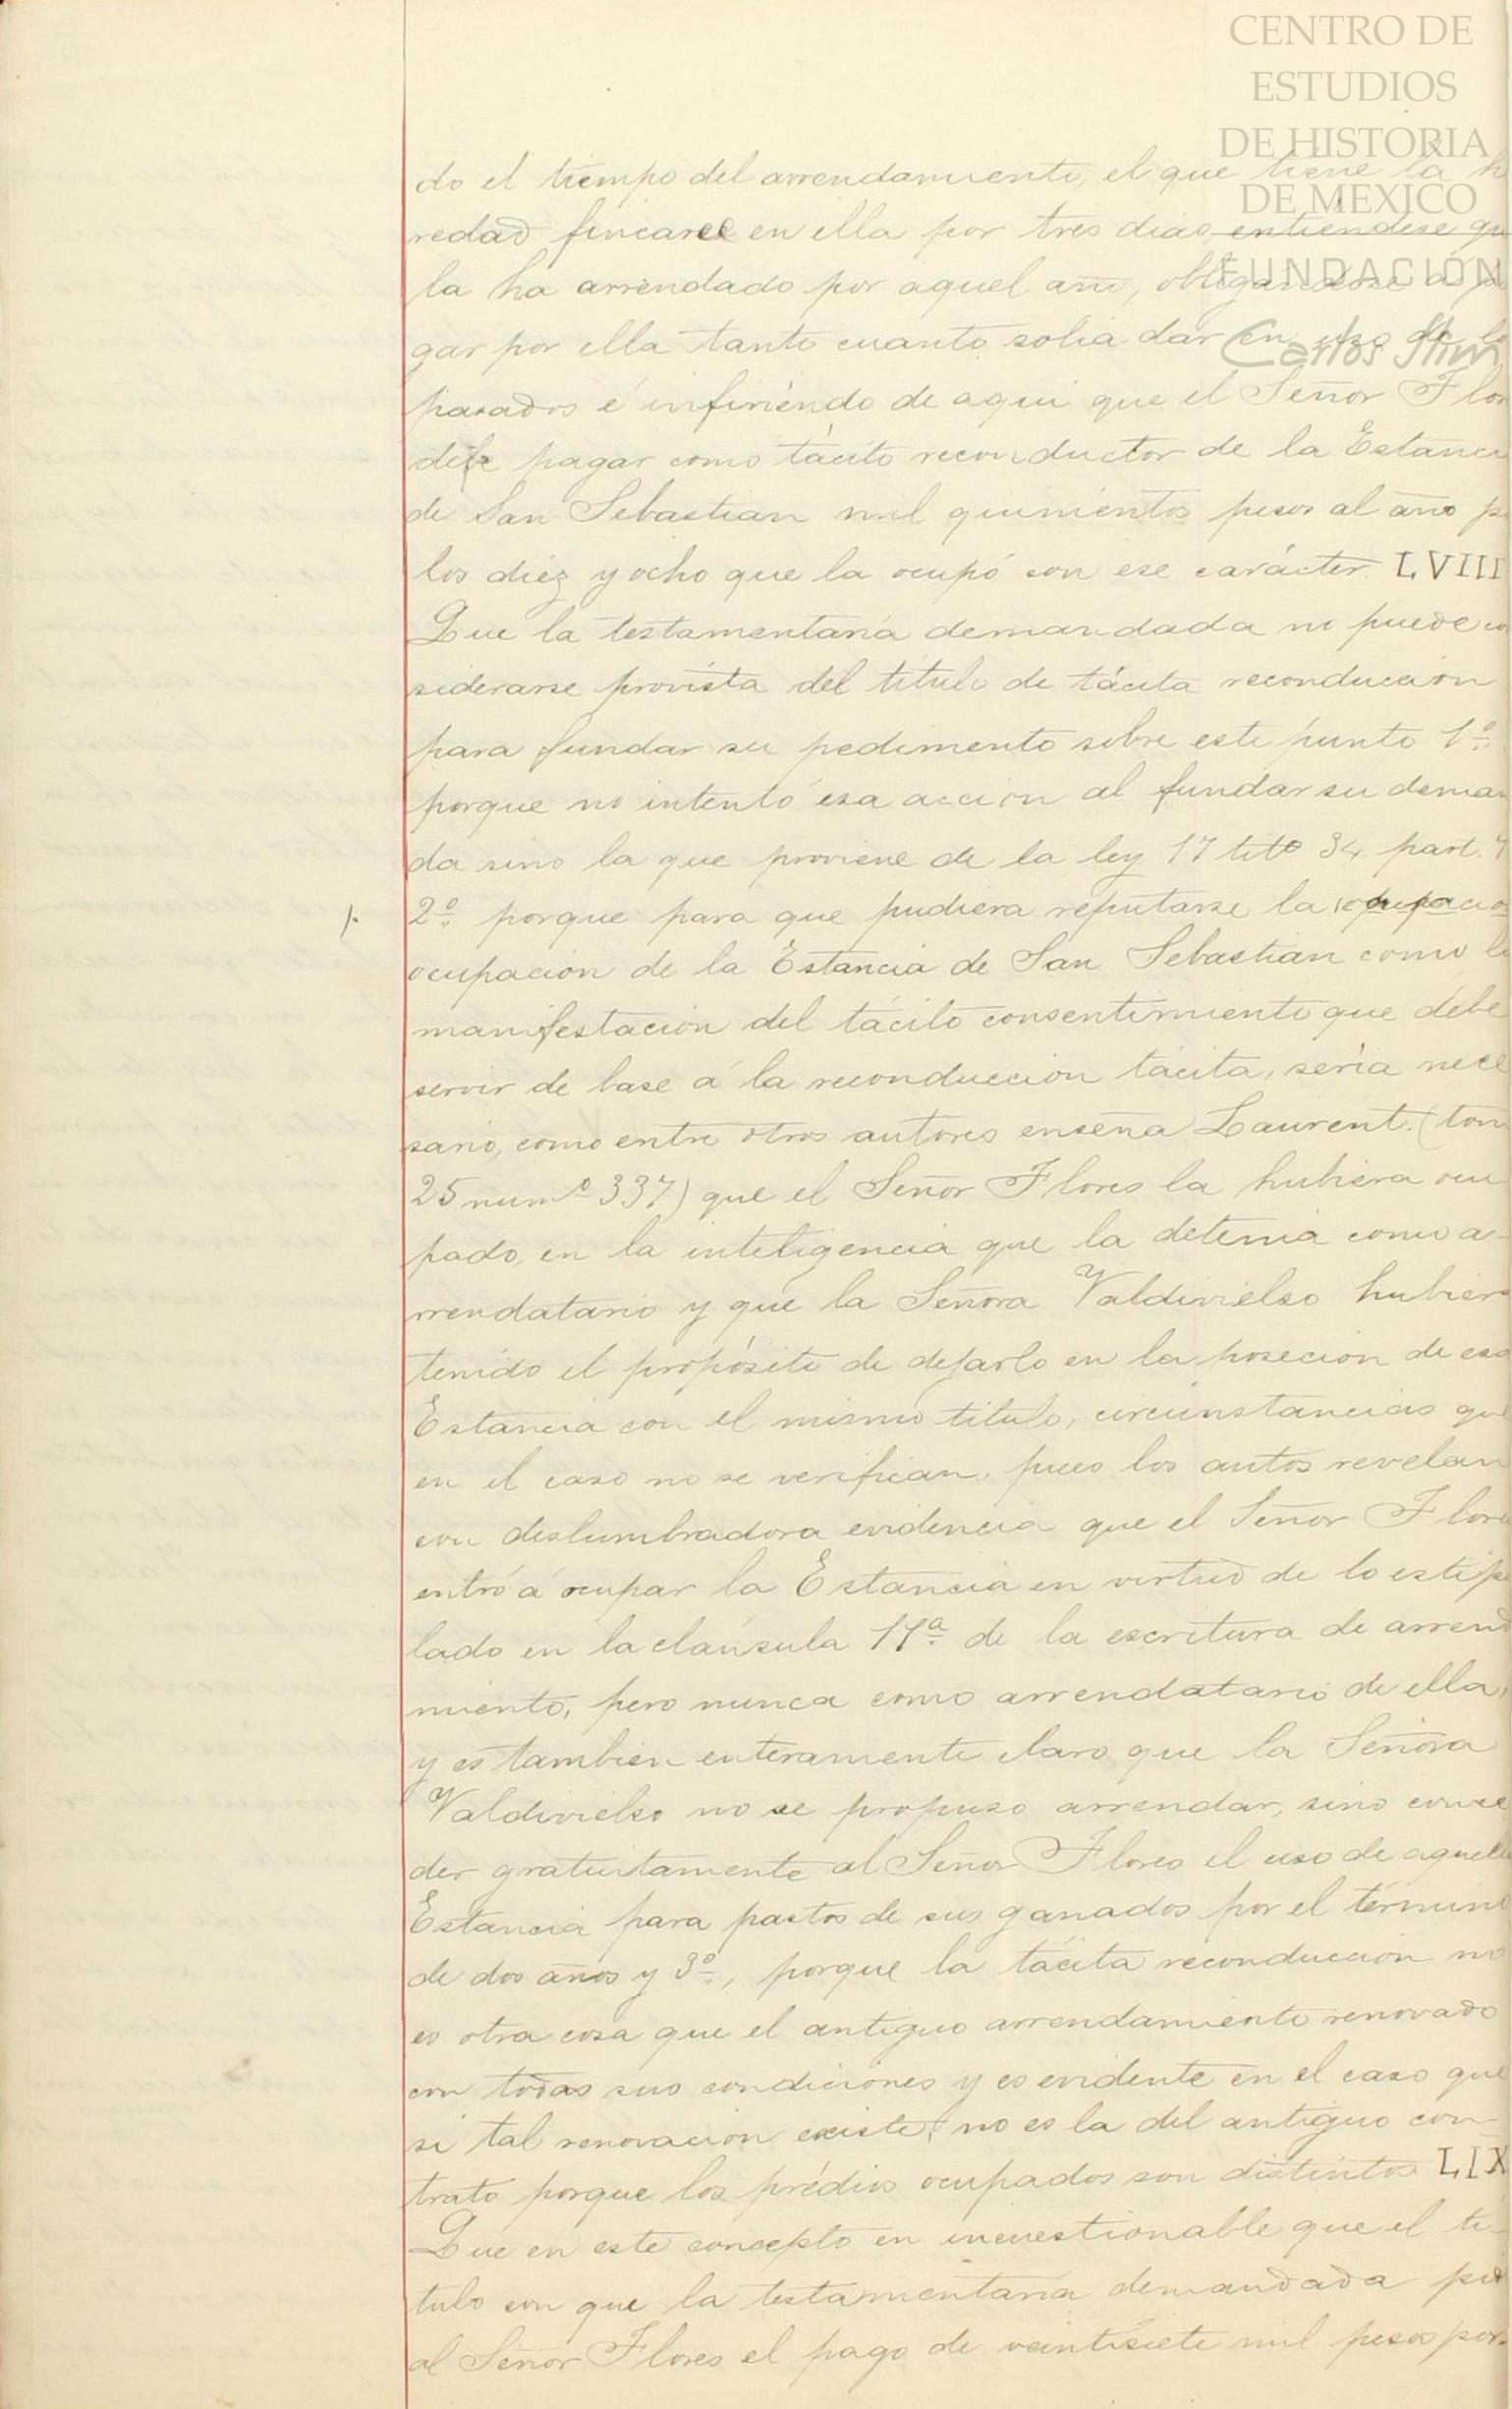 CENTRO DE
ESTUDIOS
DE HISTORIA
DE MEXICO
FUNDACIÓN
Carlos Slim
do el tiempo del arrendamiento, el que tiene la h
redad fincare en ella por tres dias, entiendese qu
la ha arrendado por aquel año, obligandose á pa
gar por ella tanto cuanto solia dar en uso de lo
pasados é infiriéndo de aqui que el Señor Flor
debe pagar como tácito reconductor de la Estanci
de San Sebastian mil quinientos pesos al año p
los diéz y ocho que la ocupó con ese carácter. LVIII
Que la testamentaria demandada no puede co
siderarse provista del título de tácita reconduccion
para fundar su pedimento sobre este punto 1º
porque no intentó esa accion al fundar su deman
da sino la que proviene de la ley 17 titº 34. part. 7
/. 2º porque para que pudiera reputarse la
ocupacion de la Estancia de San Sebastian como la
manifestacion del tácito consentimiento que debe
servir de base á la reconduccion tácita, séria nece
sario, como entre otros autores enseña Laurent. (tom
25 numº 337.) que el Señor Flores la hubiera ocu
pado, en la inteligencia que la detenia como a-
rrendatario y que la Señora Valdivielso hubiera
tenido el propósito de dejarlo en la posecion de esa
Estancia con el mismo titulo, circunstancias que
en el caso no se verifican, pues los autos revelan
con deslumbradora evidencia que el Señor Flore
entró á ocupar la Estancia en virtud de lo estipu
lado en la claúsula 17ª de la escritura de arrend
miento, pero nunca como arrendatario de ella,
y es tambien enteramente claro que la Señora
Valdivielso no se propuso arrendar, sino conce
der gratuitamente al Señor Flores el uso de aquella
Estancia para pastos de sus ganados por el termino
de dos años y 3º, porque la tácita reconduccion no
es otra cosa que el antiguo arrendamiento renovado
con todas sus condiciónes y es evidente en el caso que
si tal renovacion existe, no es la del antiguo con-
trato porque los prédios ocupados son distintos LIX
Que en este concepto en incuestionable que el ti-
tulo con que la testamentaria demandada pid
al Señor Flores el pago de veintisiete mil pesos por